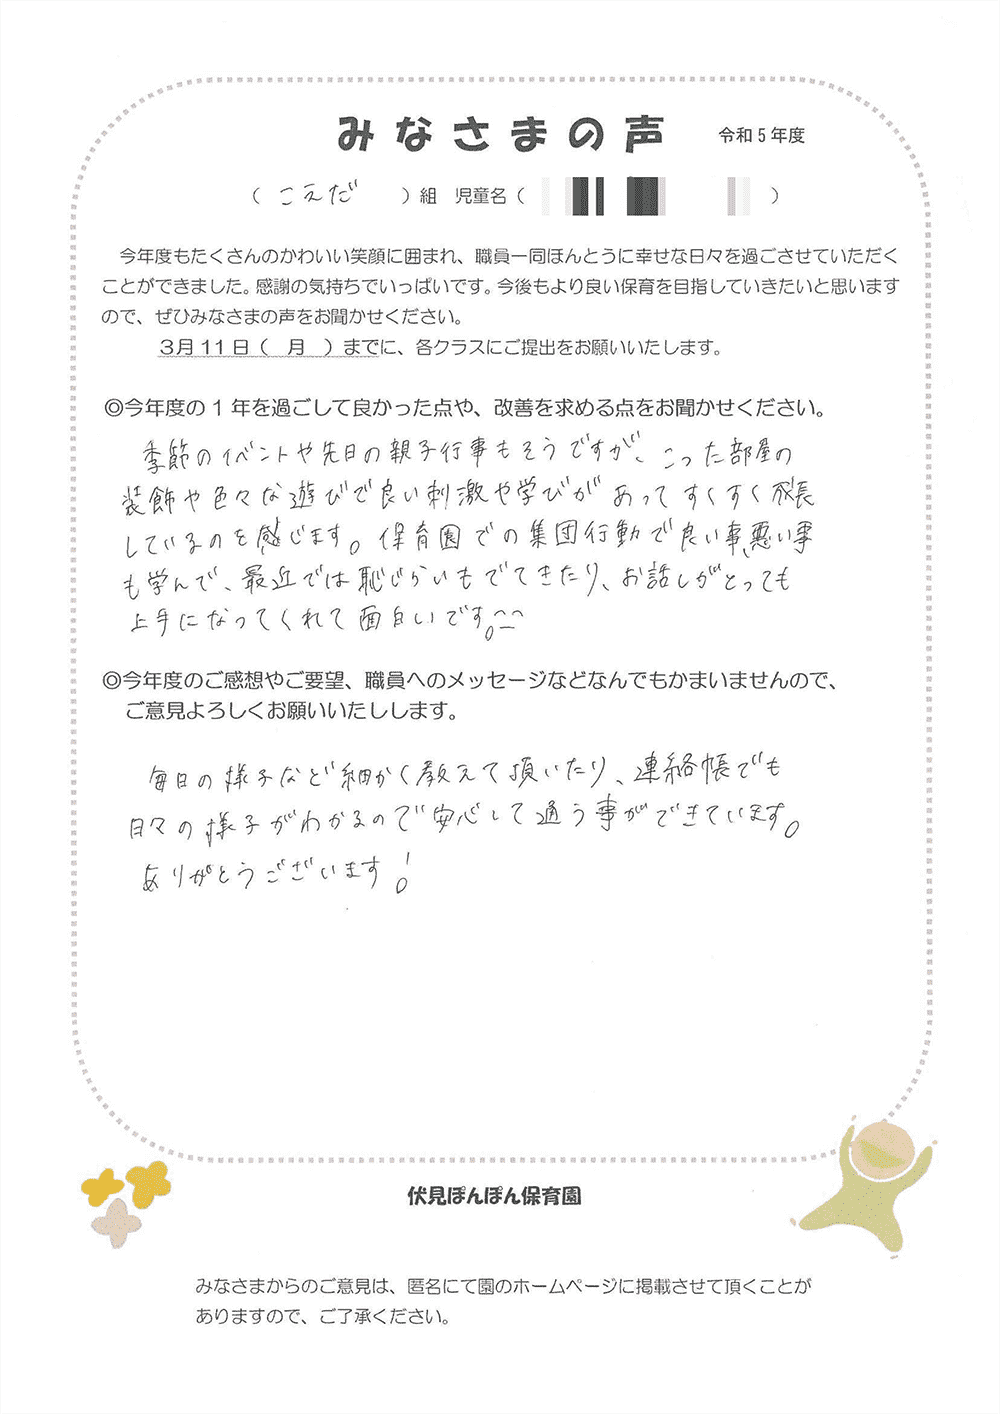 みなさまの声 令和5年度
（ こえだ ）組 児童名（ ）
今年度もたくさんのかわいい笑顔に囲まれ、職員一同ほんとうに幸せな日々を過ごさせていただく
ことができました。感謝の気持ちでいっぱいです。今後もより良い保育を目指していきたいと思います
ので、ぜひみなさまの声をお聞かせください。
3月11日（ 月 ）までに、各クラスにご提出をお願いいたします。
◎今年度の1年を過ごして良かった点や、改善を求める点をお聞かせください。
季節のイベントや先日の親子行事もそうですが、こった部屋の
装飾や色々な遊びで良い刺激や学びがあってすくすく成長
しているのを感じます。保育園での集団行動で良い事、悪い事
も学んで、最近では恥じらいもでてきたり、お話しがとっても
上手になってくれて面白いです。
◎今年度のご感想やご要望、職員へのメッセージなどなんでもかまいませんので、
ご意見よろしくお願いいたしします。
毎日の様子など細かく教えて頂いたり、連絡帳でも
日々の様子がわかるので安心して通う事ができています。
ありがとうございます！
伏見ぽんぽん保育園
みなさまからのご意見は、匿名にて園のホームページに掲載させて頂くことが
ありますので、ご了承ください。